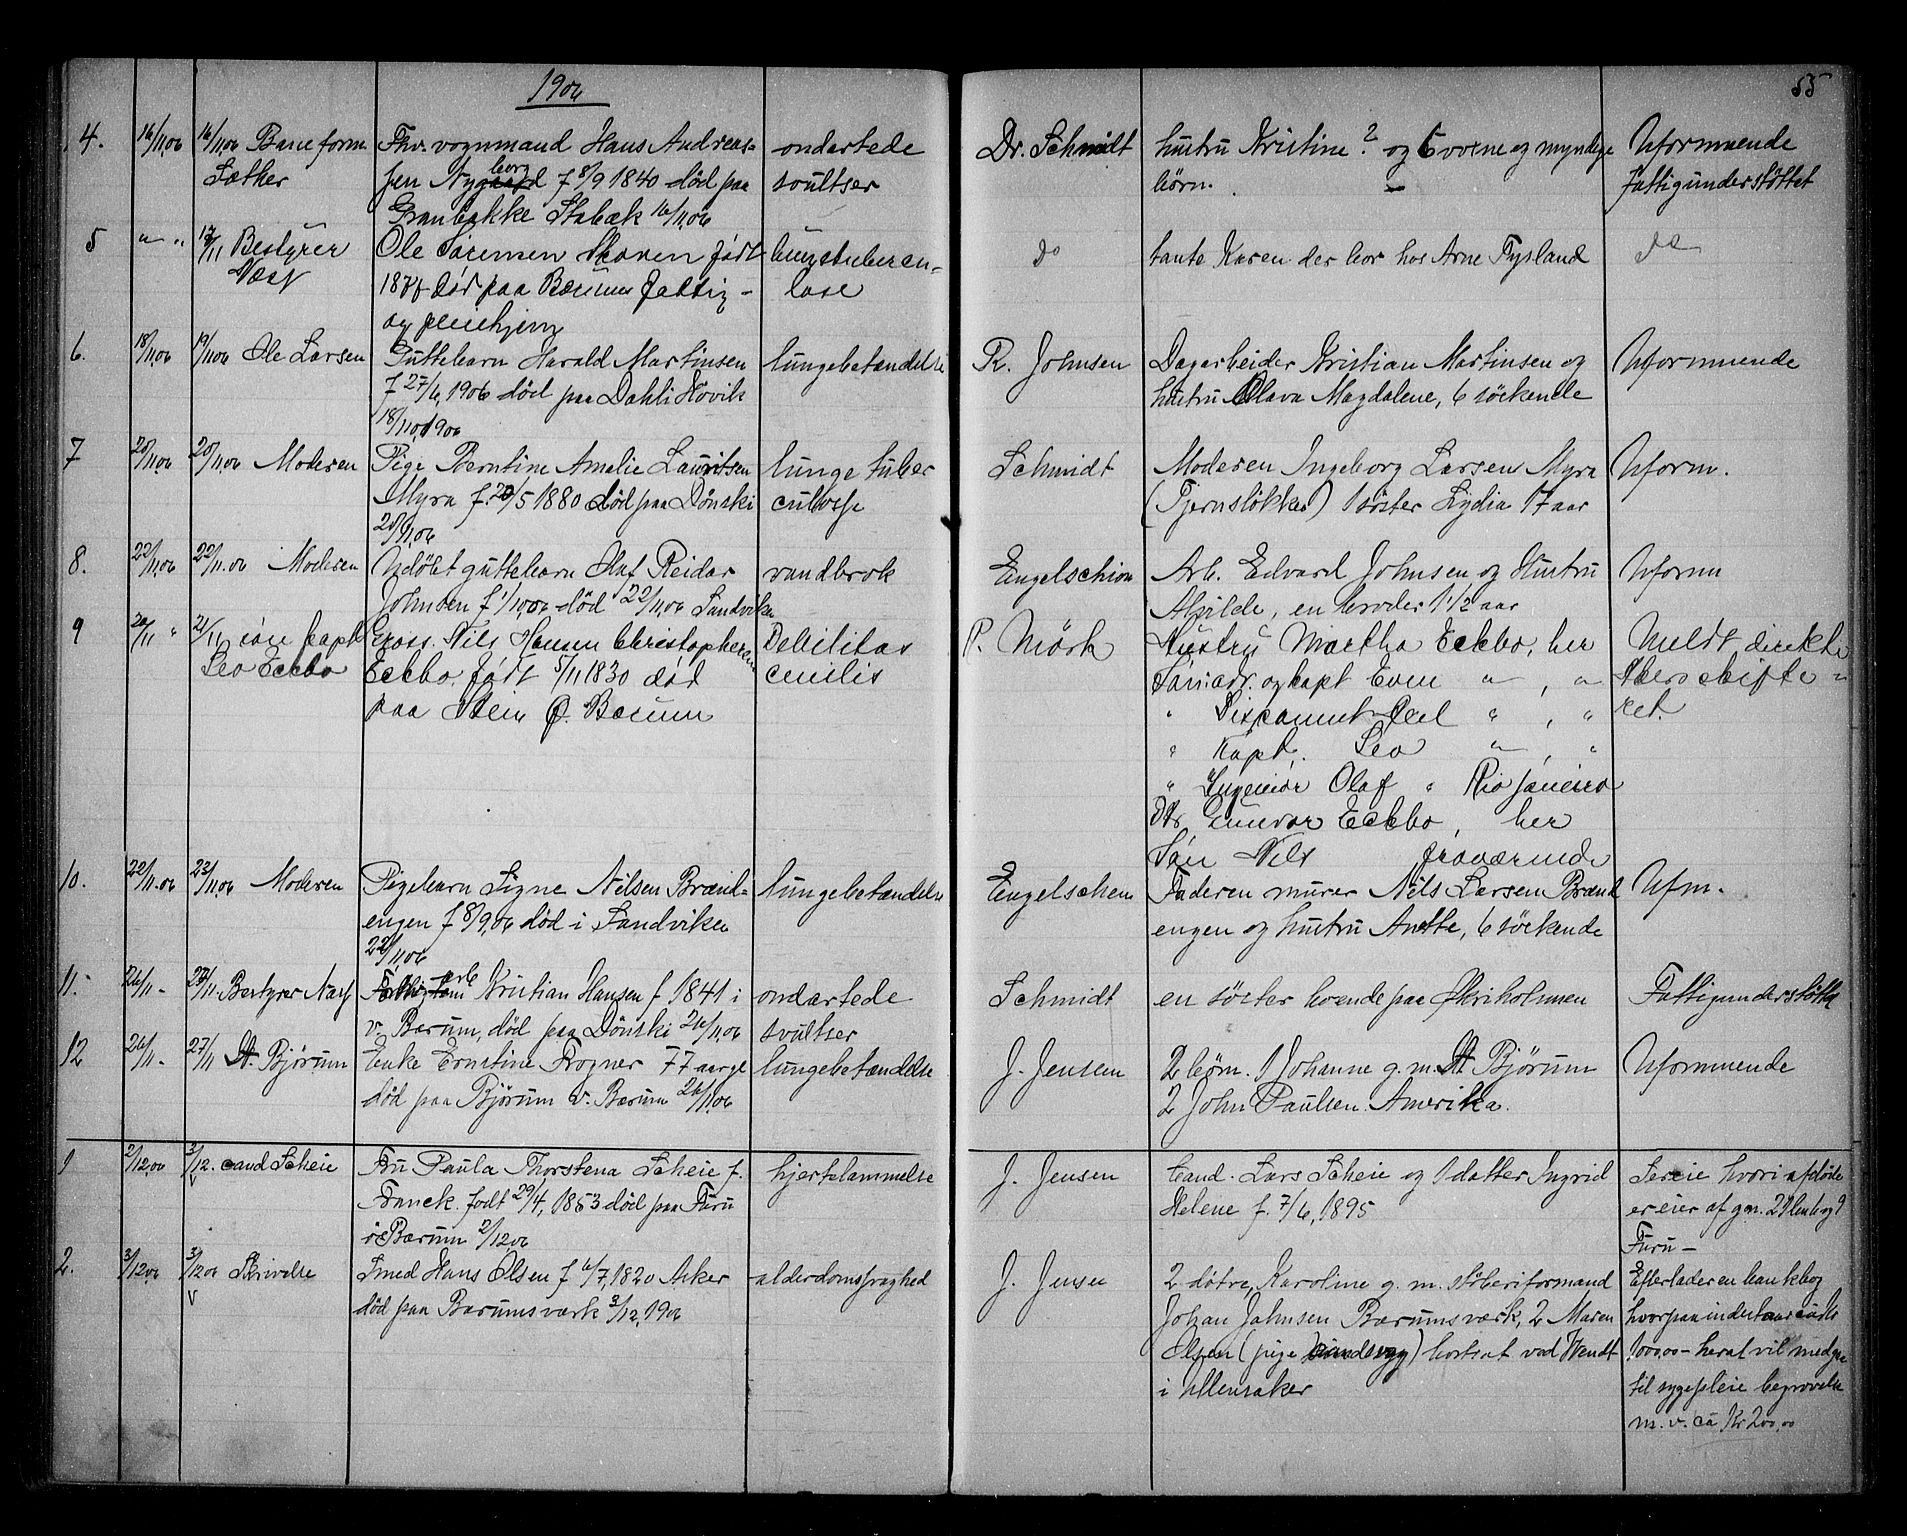 1906
55
4. 16/11,06 16/11,06 Baneform. Thv. vognmand Hans Andreas- ondartede Dr. Schmidt hustru Kristine? og 6 voxne og myndige Uformuende
Sæther sen Nyborg f 8/9 1840 død paa svultser børn. Fattigunderstøttet
Granbakke Stabæk 16/11,06
5 " " 17/11 Bestyrer Ole Sørensen Skoven født lungetubercu- do tante Karen der bor hos Arne Tysland do
Næss død paa Bærums Fattig- lose
og pleiehjem
6. 18/11,06 19/11 06 Ole Larsen Guttebarn Harald Martinsen lungebetændelse R. Johnsen Dagarbeider Kristian Martinsen og Uformuende
f 27/6, 1906 død paa Dahli Høvik hustru Olava Magdalene, 6 söskende
18/11 1906
7 20/11,06 20/11,06 Moderen Pige Berntine Amalie Lauritsen lungetuber Schmidt Moderen Ingeborg Larsen Myra Uform.
Myra f. 20/5 1880 død paa Dønski culose (Tjernsløkken) 1 söster Lydia 17 aar
20/11,06
8. 22/11,06 22/11.06 Moderen Udöbt guttebarn Olaf Reidar vandbrok Engelschiøn Arb. Edvard Johnsen og Hustru Uform
Johnsen f 1/10,06 død 22/11,06 Sandviken Alvilde, en broder 1 1/2 aar
9 20/11 " 21/11 søn kapt Gross. Nils Hansen Christophersen Debilitas P. Mörk Hustru Martha Eckbo, her Meldt direkte
Leo Eckbo Eckbo født 5/11 1830 død cenilis Sön adv. og kapt Even " , " Akers skifte-
paa Stein Ø. Bærum " Disponent Axel " , " ret.
" Kapt. Leo " , "
" Ingeniør Olaf " Rio Janeiro
Dtr. Gunvor Eckbo, her
Sön Nils fraværende
10. 22/11.06 23/11,06 Moderen Pigebarn Signe Nilsen Brænd- lungebetændelse Engelschøn Faderen murer Nils Larsen Brænd Ufm.
engen f 8/9,06 død i Sandviken engen og hustru Anette, 6 söskende
22/11 06
11. 26/11- 27/11- Bestyrer Næss arb Kristian Hansen f 1841 i ondartede Schmidt en söster boende paa Økriholmen Fattigunderstøttet
v. Bærum, død paa Dönski 26/11,06 svultser
12 26/11- 27/11 A. Bjørum Enke Ernstine Frogner 77 aar gl lungebetændelse J. Jensen 2 börn. 1 Johanne g. m. A Bjørum Uformuende
død paa Bjørum v. Bærum 26/11,06 2 John Paulsen. Amerika.
1 2/12,06 3/12. cand Scheie Fru Paula Thorstena Scheie f. hjertelammelse J. Jensen Cand. Lars Scheie og 1 datter Ingrid hvori afdøde
Franck. født 29/4, 1853 død paa Furu Helene f. 7/6, 1895 er eier af gn.
i Ø Bærum 2/12 06 Furu-
2. 3/12,06 3/12 06 Skrivelse Smed Hans Olsen f 6/7, 1820 Asker alderdomssvaghed J. Jensen 2 døtre, Karoline g. m. støberiformand Efterlader en bankbog
død paa Bærumsværk 3/12, 1906 Johan Johnsen Bærumsværk, 2 Maren hvorpaa indestaar cirka
Olsen (pige) bosat ved Wendt 1000.00- herat vil medgaa
i Ullensaker til sygepleie begravelse
m. v. ca Kr 200,00